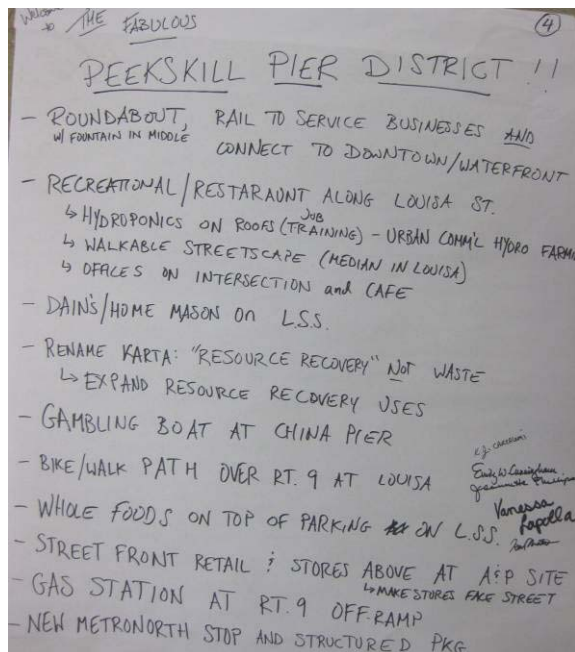 Welcome to THE FABULOUS
4
PEEKSKILL PIER DISTRICT !!
- ROUNDABOUT, RAIL TO SERVICE BUSINESSES AND
W/ FOUNTAIN IN MIDDLE CONNECT TO DOWNTOWN/WATERFRONT
- RECREATIONAL/RESTARAUNT ALONG LOUISA ST.
↳ HYDROPONICS ON ROOFS (JOB TRAINING) - URBAN COMM'L HYDRO FARMS
↳ WALKABLE STREETSCAPE (MEDIAN IN LOUISA)
↳ OFFICES ON INTERSECTION and CAFE
- DAIN'S/HOME MASON ON L.S.S.
- RENAME KARTA: "RESOURCE RECOVERY" NOT WASTE
↳ EXPAND RESOURCE RECOVERY USES
- GAMBLING BOAT AT CHINA PIER
- BIKE/WALK PATH OVER RT. 9 AT LOUISA
- WHOLE FOODS ON TOP OF PARKING ON L.S.S.
Vanessa
- STREET FRONT RETAIL & STORES ABOVE AT A&P SITE
↳ MAKE STORES FACE STREET
- GAS STATION AT RT. 9 OFF-RAMP
- NEW METRONORTH STOP AND STRUCTURED PKG